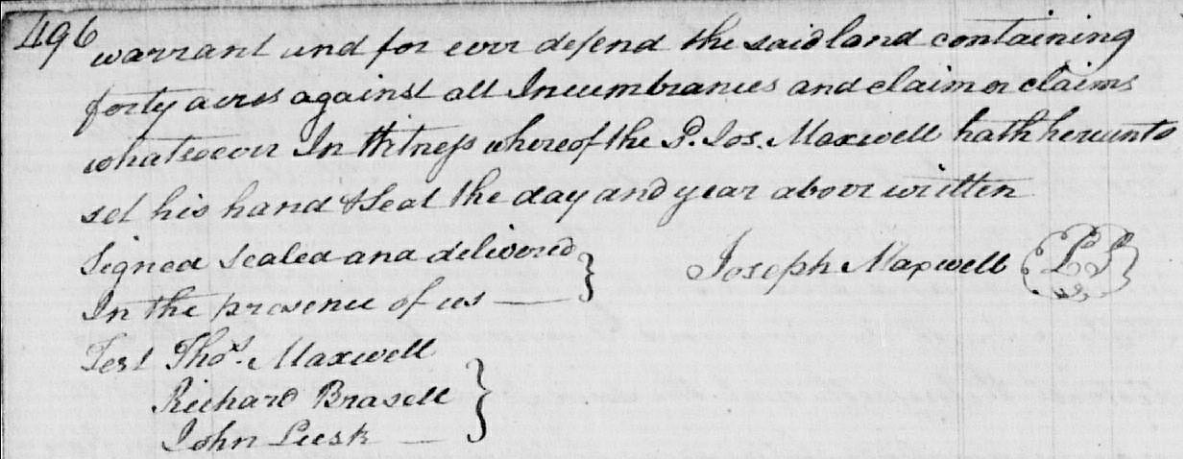 496
warrant and for ever defend the said land containing
forty acres against all Incumbrances and claim or claims
whatsoever In Witness whereof the S. Jos. Maxwell hath hereunto
set his hand & Seal the day and year above written
Signed Sealed and delivered } Joseph Maxwell (LS)
In the presence of us —
Test Thos. Maxwell
Richard Brasell }
John Leesk —